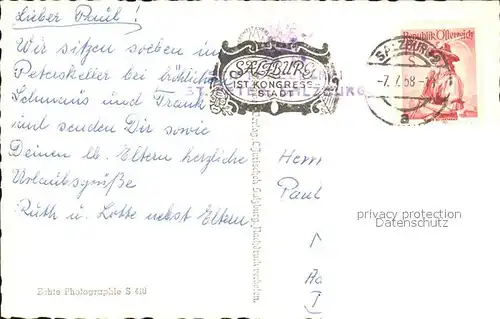 Lieber Paul!
Wir sitzen soeben im
Peterskeller bei fröhlichem
Schmaus und Trank
und senden Dir sowie
Deinen lb. Eltern herzliche
Urlaubsgrüße
Ruth u. Lotte nebst Eltern.
Echte Photographie S 410
SALZBURG
IST KONGRESS-
STADT
Republik Österreich
SALZBURG 2
-7.7.58-
a
Herrn
Paul
privacy protection
watermark